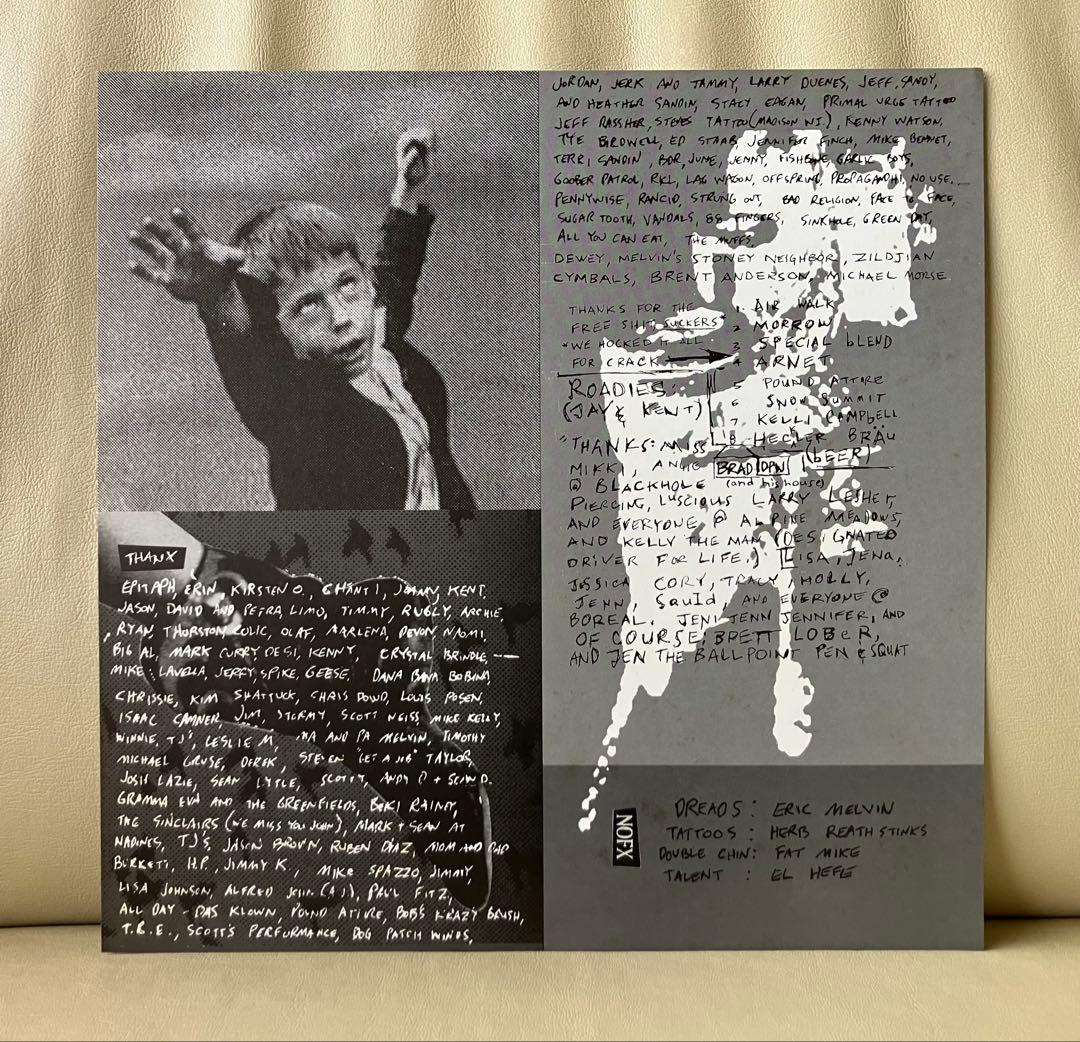 THANX
EPITAPH, ERIN, KIRSTEN O., CHANTI, JOHNNY, KENT,
JASON, DAVID AND PETRA, LIMO, TIMMY, RUGLY, ARCHIE,
RYAN, THURSTON COLIC, OLAF, MARLENA, DEVON, NAOMI,
BIG AL, MARK CURRY, DESI, KENNY, CRYSTAL BRINDLE,
MIKE LAVELLA, JERRY, SPIKE, GEESE, DANA BANA BOBINA
CHRISSIE, KIM SHATTUCK, CHRIS DOWD, LOUIS POSEN,
ISAAC CAMNER, JIM, STORMY, SCOTT NEISS, MIKE KELLY,
WINNIE, TJ'S, LESLIE M, MA AND PA MELVIN, TIMOTHY
MICHAEL CRUSE, DEREK, STEVEN "GET A JOB" TAYLOR,
JOSH LAZIE, SEAN LYTLE, SCOTTY, ANDY P + D.
GRAMMA EVA AND THE GREENFIELDS, BEKI RAINY,
THE SINCLAIRS (WE MISS YOU JOHN), MARK + SEAN AT
NADINES, TJ'S, JASON BROWN, RUBEN DIAZ, MOM AND DAD
BURKETT, H.P., JIMMY K., MIKE SPAZZO, JIMMY,
LISA JOHNSON, ALFRED JOHN (A J), PAUL FITZ,
ALL DAY - DAS KLOWN, POUND ATTIRE, BOB'S KRAZY BRUSH,
T.B.E., SCOTT'S PERFORMANCE, DOG PATCH WINOS,
JORDAN, JERK AND TAMMY, LARRY DUENES, JEFF, SANDY,
AND HEATHER SANDIN, STACY EAGAN, PRIMAL URGE TATTOO
JEFF RASSHER, STEVES TATTOO (MADISON WI.), KENNY WATSON,
TYE BIRDWELL, ED STAAB, JENNIFER FINCH, MIKE BENNET,
TERRI SANDIN, BOB, JUNE, JENNY, FISHBONE, GARLIC BOYS,
GOOBER PATROL, RKL, LAG WAGON, OFFSPRING, PROPAGANDHI, NO USE...
PENNYWISE, RANCID, STRUNG OUT, BAD RELIGION, FACE TO FACE,
SUGAR TOOTH, VANDALS, 88 FINGERS, SINKHOLE, GREEN DAY,
ALL YOU CAN EAT, THE MUFFS,
DEWEY, MELVIN'S STONEY NEIGHBOR, ZILDJIAN
CYMBALS, BRENT ANDERSON, MICHAEL MORSE
THANKS FOR THE
FREE SHIT, SUCKERS*
*WE HOCKED IT ALL
FOR CRACK
1. AIR WALK
2 MORROW
3 SPECIAL bLEND
4 ARNET
5 POUND ATTIRE
6 SNOW SUMMIT
7 KELLI CAMPbELL
8 HECKLER BRÄU
(bEER)
ROADIES:
(JAY & KENT)
"THANKS: MISS
MIKKI, ANGIE
@ BLACKHOLE
BRAD DPN
(and his house)
PIERCING, LUSCIOUS LARRY LESHER,
AND EVERYONE @ ALPINE MEADOWS,
AND KELLY THE MAN (DESIGNATED
DRIVER FOR LIFE.) LISA, JENA,
JESSICA CORY, TRACY, HOLLY,
JENN, SquId, AND EVERYONE @
BOREAL. JENI JENN JENNIFER, AND
OF COURSE, BRETT LOBER,
AND JEN THE BALLPOINT PEN & SQUAT
NOFX
DREADS: ERIC MELVIN
TATTOOS: HERB REATHSTINKS
DOUBLE CHIN: FAT MIKE
TALENT: EL HEFE